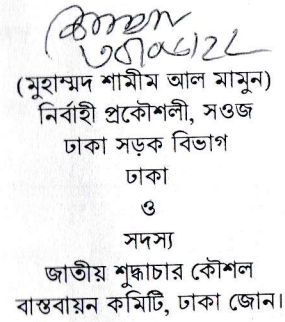 (মুহাম্মদ শামীম আল মামুন)
নির্বাহী প্রকৌশলী, সওজ
ঢাকা সড়ক বিভাগ
ঢাকা
ও
সদস্য
জাতীয় শুদ্ধাচার কৌশল
বাস্তবায়ন কমিটি, ঢাকা জোন।